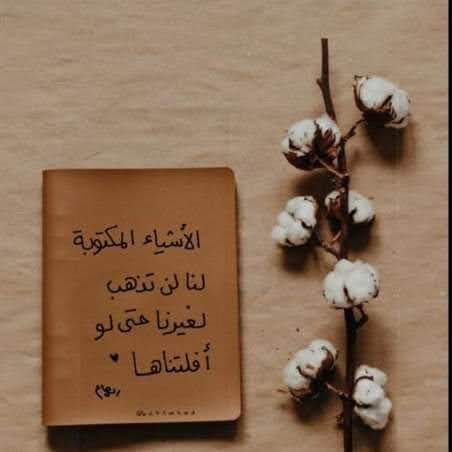 الأشياء المكتوبة
لنا لن تذهب
لغيرنا حتى لو
أفلتناها